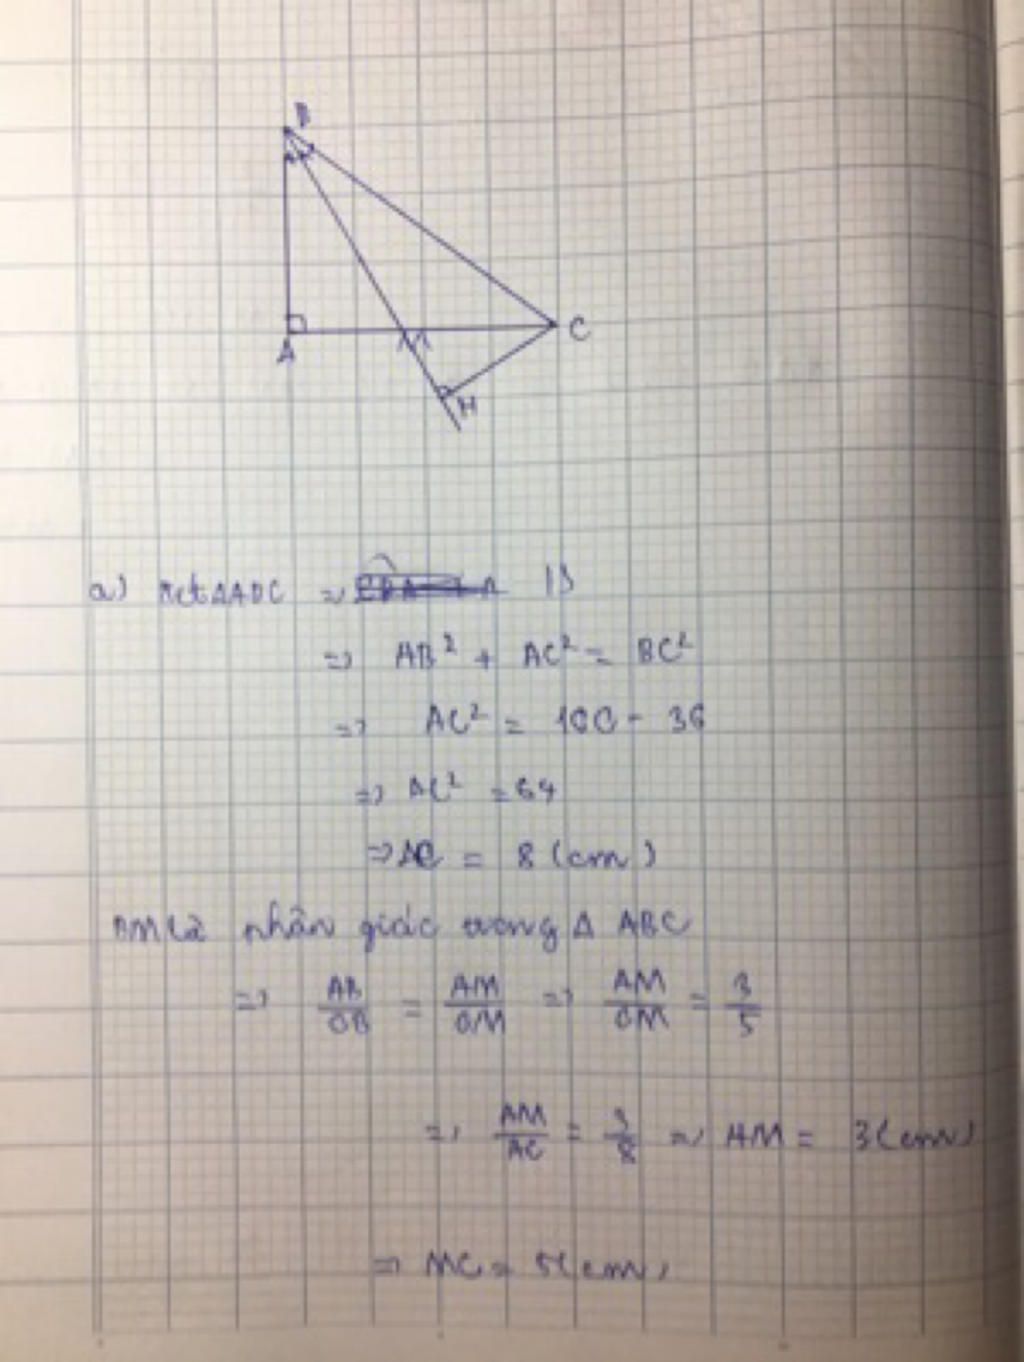 B
A
C
M
H
a) Xét ΔABC
=> AB² + AC² = BC²
=> AC² = 100 - 36
=> AC² = 64
=> AC = 8 (cm)
BM là phân giác trong Δ ABC
=> AB/CB = AM/CM => AM/CM = 3/5
=> AM/AC = 3/8 => AM = 3(cm)
=> MC = 5(cm)